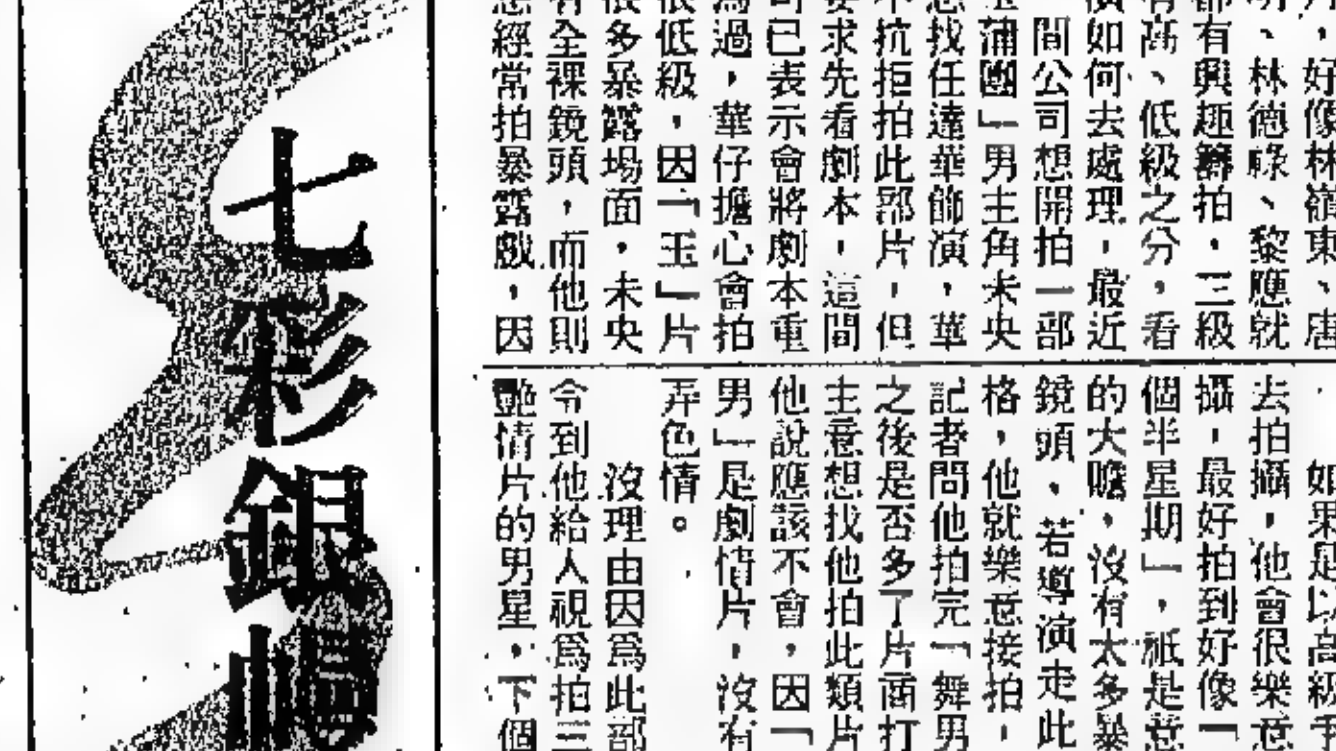 月，好像林嶺東、唐
明、林德祿、黎應就
都有興趣籌拍，三級
有高、低級之分，看
演如何去處理，最近
間公司想開拍一部
玉蒲團」男主角未央
想找任達華飾演，華
不抗拒拍此部片，但
要求先看劇本，這間
司已表示會將劇本重
為過，華仔擔心會拍
很低級，因「玉」片
很多暴露場面，未央
有全裸鏡頭，而他則
想經常拍暴露戲，因
如果是以高級手
去拍攝，他會很樂意
攝，最好拍到好像「
個半星期」，祇是意
的大瞻，沒有太多暴
鏡頭，若導演走此
格，他就樂意接拍，
記者問他拍完「舞男
之後是否多了片商打
主意想找他拍此類片
他說應該不會，因「
男」是劇情片，沒有
弄色情。
沒理由因爲此部
令到他給人視爲拍三
艷情片的男星，下個
七彩銀幟